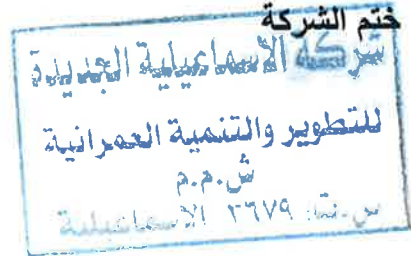 ختم الشركة
شركة الأسماعيلية الجديدة
للتطوير والتنمية العمرانية
ش.م.م
س.ت: ٢٦٧٩ الأسماعيلية